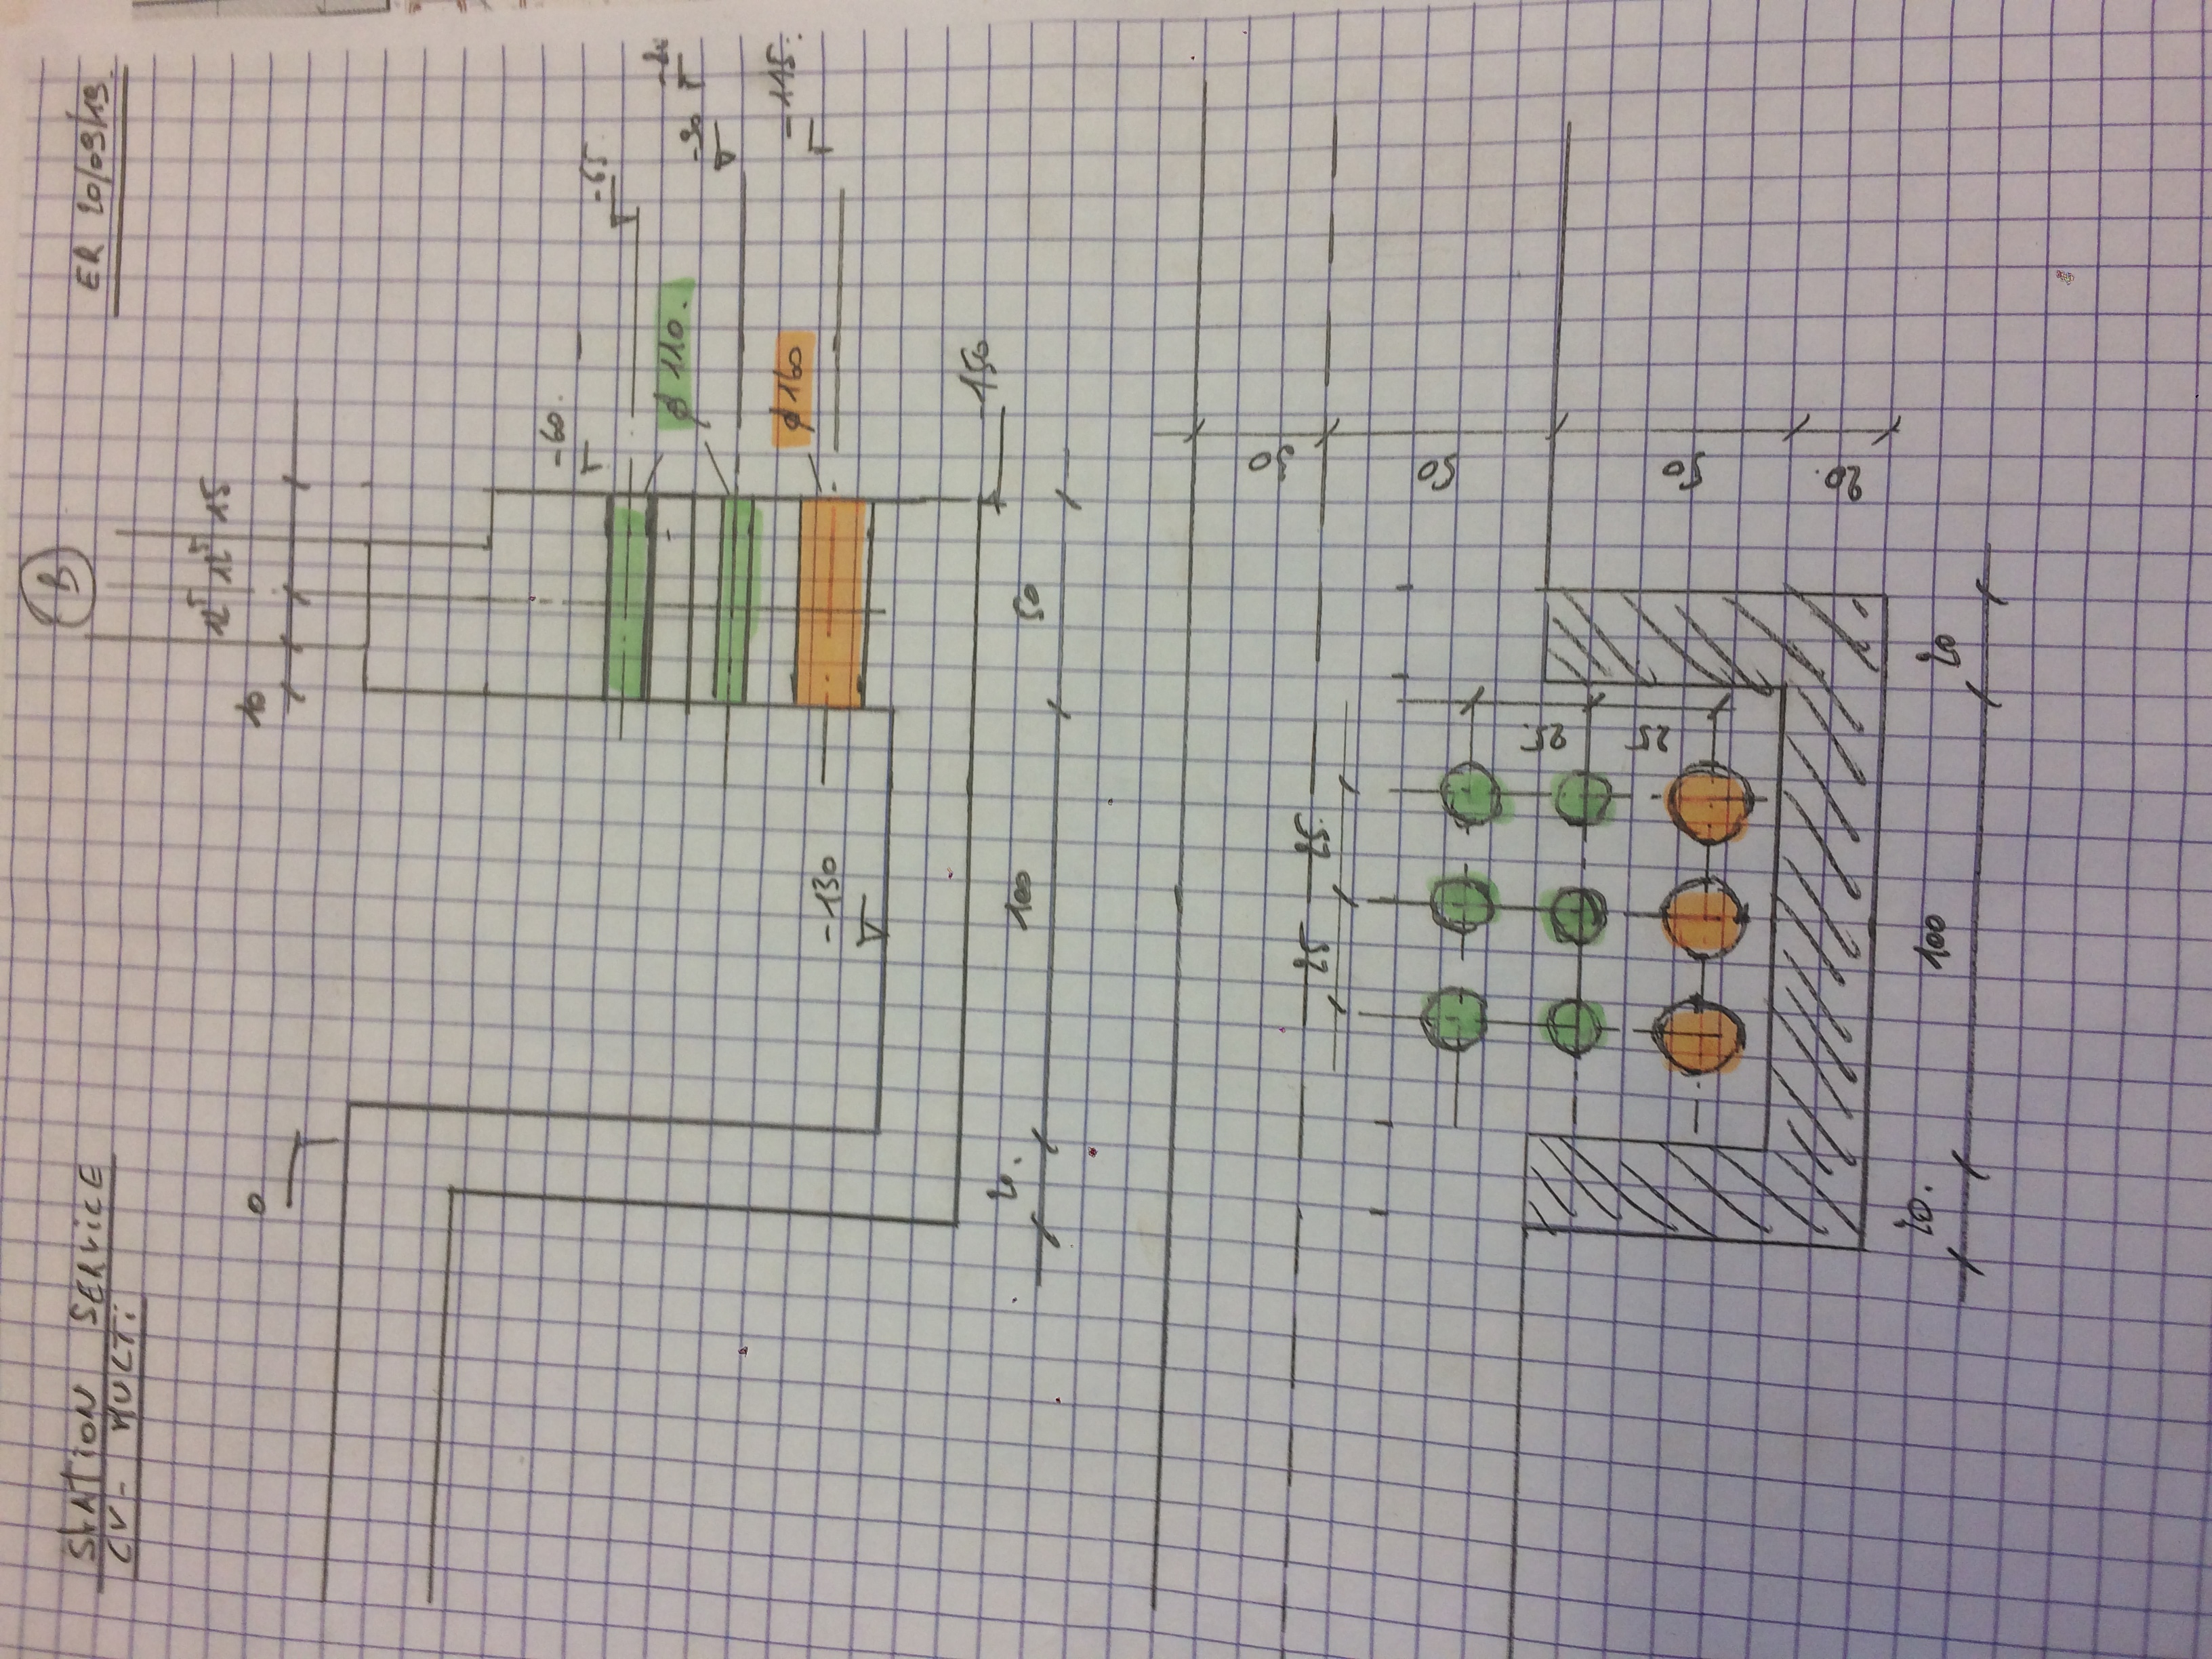 B
STATION SERVICE
CV - MULTI
ER 20/09/19.
0
10 12⁵ 12⁵ 15
-60.
-65
ø 110.
-90
ø 160
-115.
-130
-150
20. 100 50
30
25 25.
50
25.
25
50
20.
20. 100 20